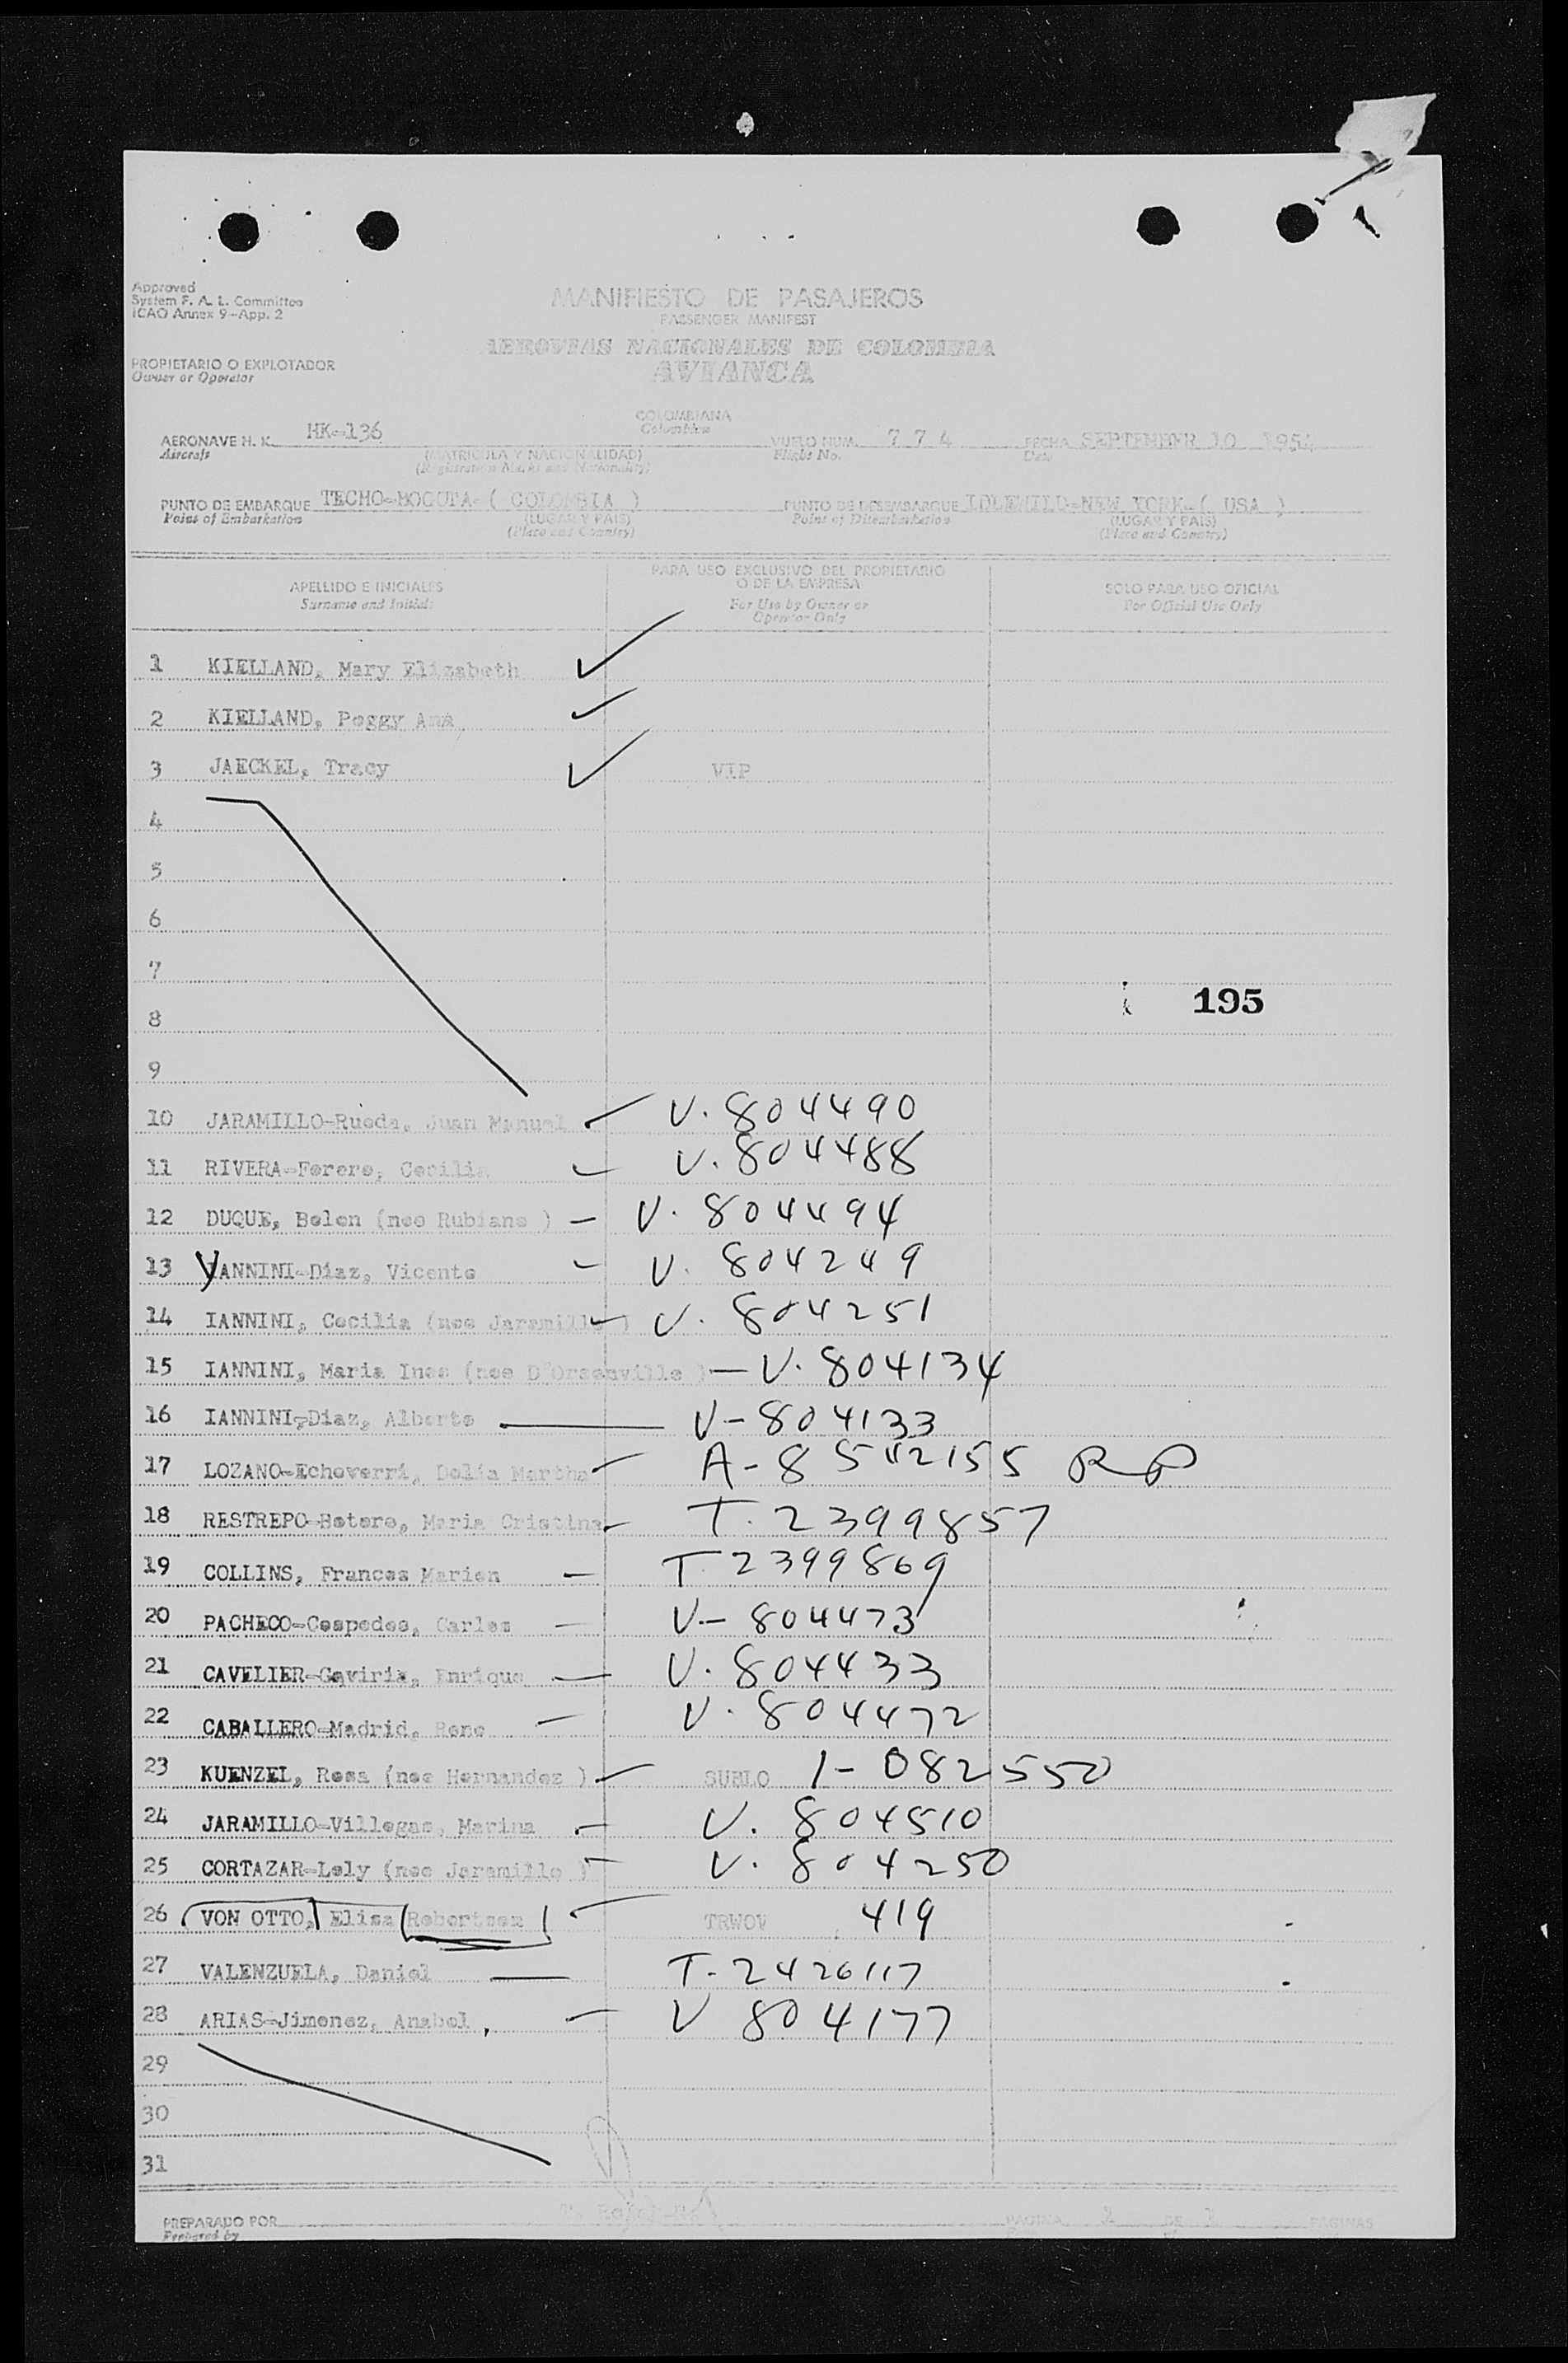 Approved
System F. A. L. Committee
ICAO Annex 9-App. 2
MANIFIESTO DE PASAJEROS
PASSENGER MANIFEST
AEROVIAS NACIONALES DE COLOMBIA
AVIANCA
PROPIETARIO O EXPLOTADOR
Owner or Operator
COLOMBIANA
Colombian
AERONAVE H. K. HK-136 VUELO NUM. 7 7 4 FECHA SEPTEMBER 10 1954
Aircraft (MATRICULA Y NACIONALIDAD) Flight No. Date
(Registration Marks and Nationality)
PUNTO DE EMBARQUE TECHO-BOGOTA-( COLOMBIA ) PUNTO DE DESEMBARQUE IDLEWILD-NEW YORK-( USA )
Point of Embarkation (LUGAR Y PAIS) Point of Disembarkation (LUGAR Y PAIS)
(Place and Country) (Place and Country)
APELLIDO E INICIALES PARA USO EXCLUSIVO DEL PROPIETARIO SOLO PARA USO OFICIAL
Surname and Initials O DE LA EMPRESA For Official Use Only
For Use by Owner or
Operator Only
1 KIELLAND, Mary Elizabeth
2 KIELLAND, Peggy Ana
3 JAECKEL, Tracy VIP
4
5
6
7
195
8
9
10 JARAMILLO-Rueda, Juan Manuel V. 804490
11 RIVERA-Forero, Cecilia V. 804488
12 DUQUE, Belen (nee Rubiano ) V. 804494
13 YANNINI-Diaz, Vicente V. 804249
14 IANNINI, Cecilia (nee Jaramillo ) V. 804251
15 IANNINI, Maria Ines (nee D'Orsonville ) V. 804134
16 IANNINI-Diaz, Alberto V-804133
17 LOZANO-Echeverri, Delia Martha A-8542155 RP
18 RESTREPO-Botero, Maria Cristina T. 2399857
19 COLLINS, Frances Marion T 2399869
20 PACHECO-Cespedes, Carlos V-804473
21 CAVELIER-Gaviria, Enrique V. 804433
22 CABALLERO-Madrid, Rene V. 804472
23 KUENZEL, Rosa (nee Hernandez ) SUBLO 1-082550
24 JARAMILLO-Villegas, Marina V. 804510
25 CORTAZAR-Lely (nee Jaramillo ) V. 804250
26 VON OTTO, Elisa Robertson TRWOV 419
27 VALENZUELA, Daniel T-2426117
28 ARIAS-Jimenez, Anabel V 804177
29
30
31
PREPARADO POR PAGINA DE PAGINAS
Prepared by